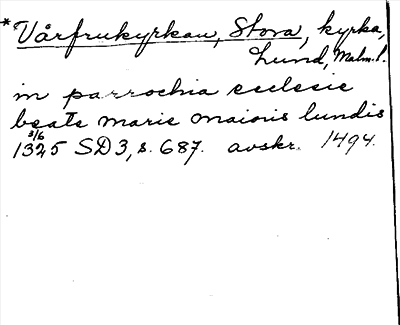 *Vårfrukyrkan, Stora, kyrka,
Lund, Malm. l.
in parrochia ecclesie
beate marie maioris lundis
3/6
1325 SD 3, s. 687. avskr. 1494.